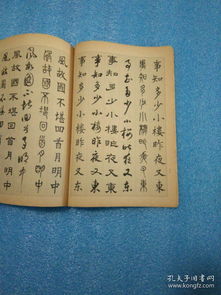 事知多少小樓昨夜又東
事知多少小樓昨夜又東
事知多少小樓昨夜又東
事知多少小樓昨夜又東
事知多少小樓昨夜又东
風故國不堪回首月明中
風故國不堪回首月明中
風故國不堪回首月明中
風故國不堪回首月明中
孔夫子旧书网